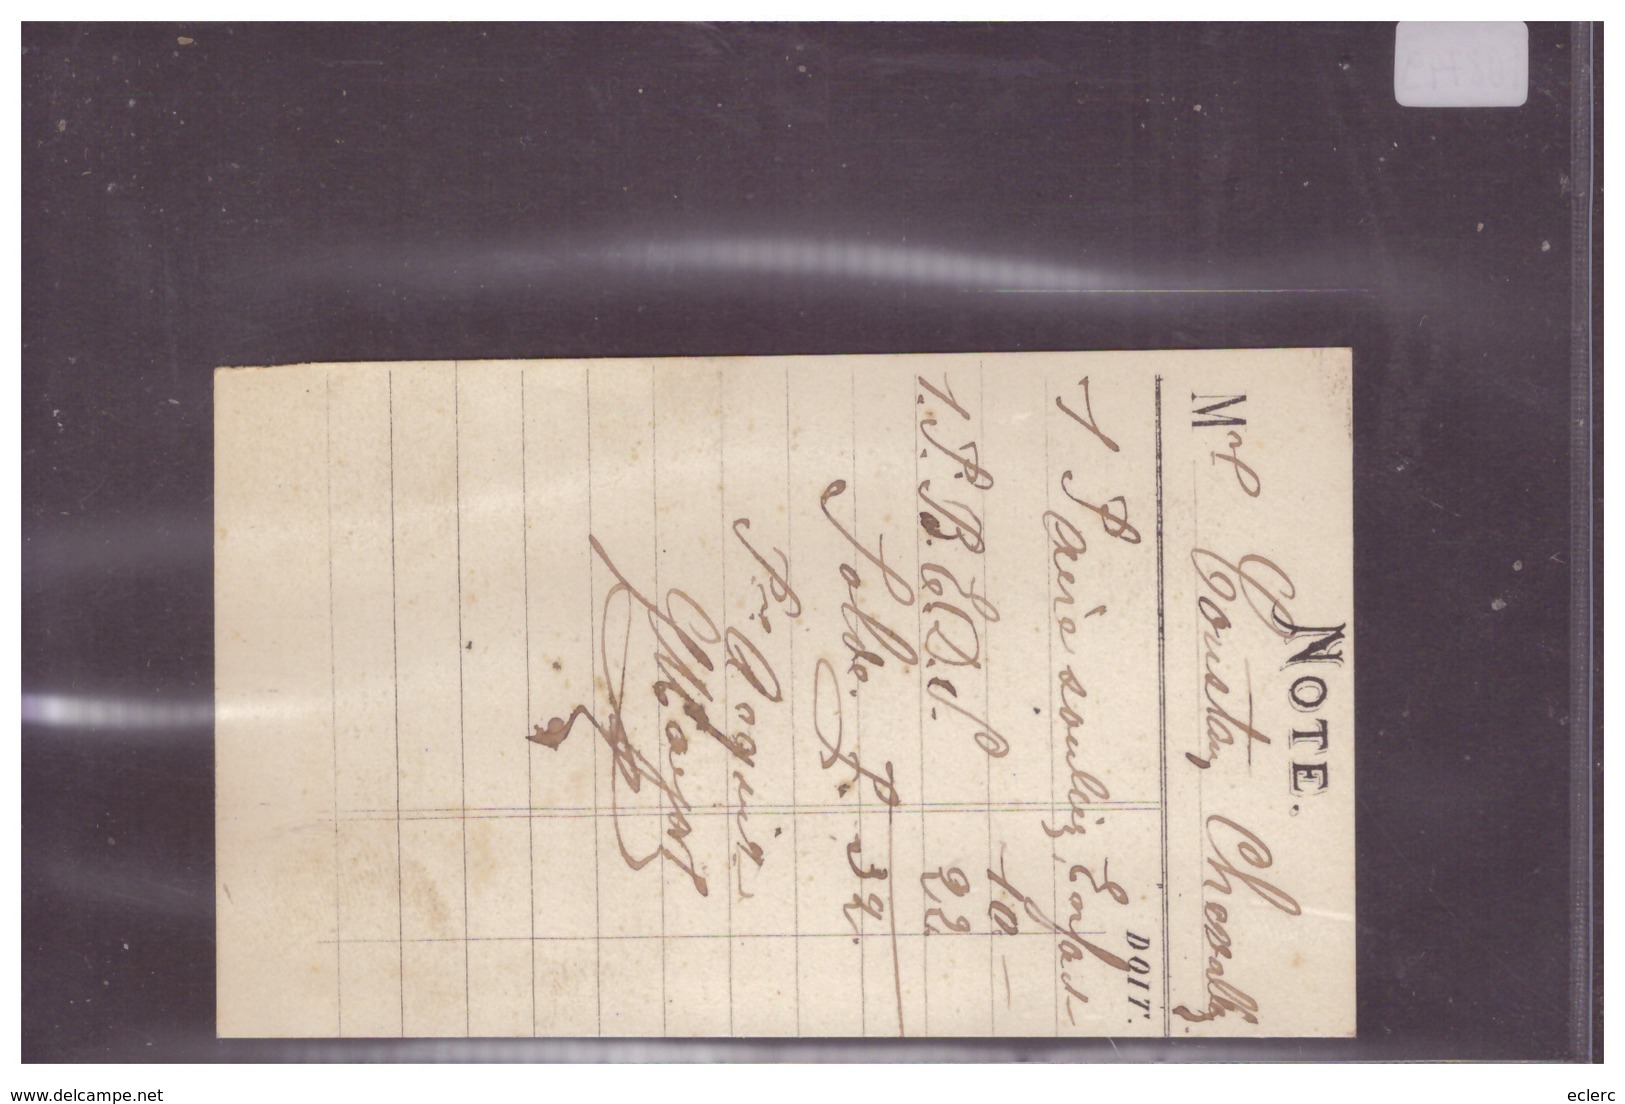 NOTE.
Mr Constan Chevalley
DOIT.
1 Paire souliez Enfant
10 -
1. P. B. E. D. V. 22
Solde f. 32.
Pr Acquit
www.delcampe.net
eclerc